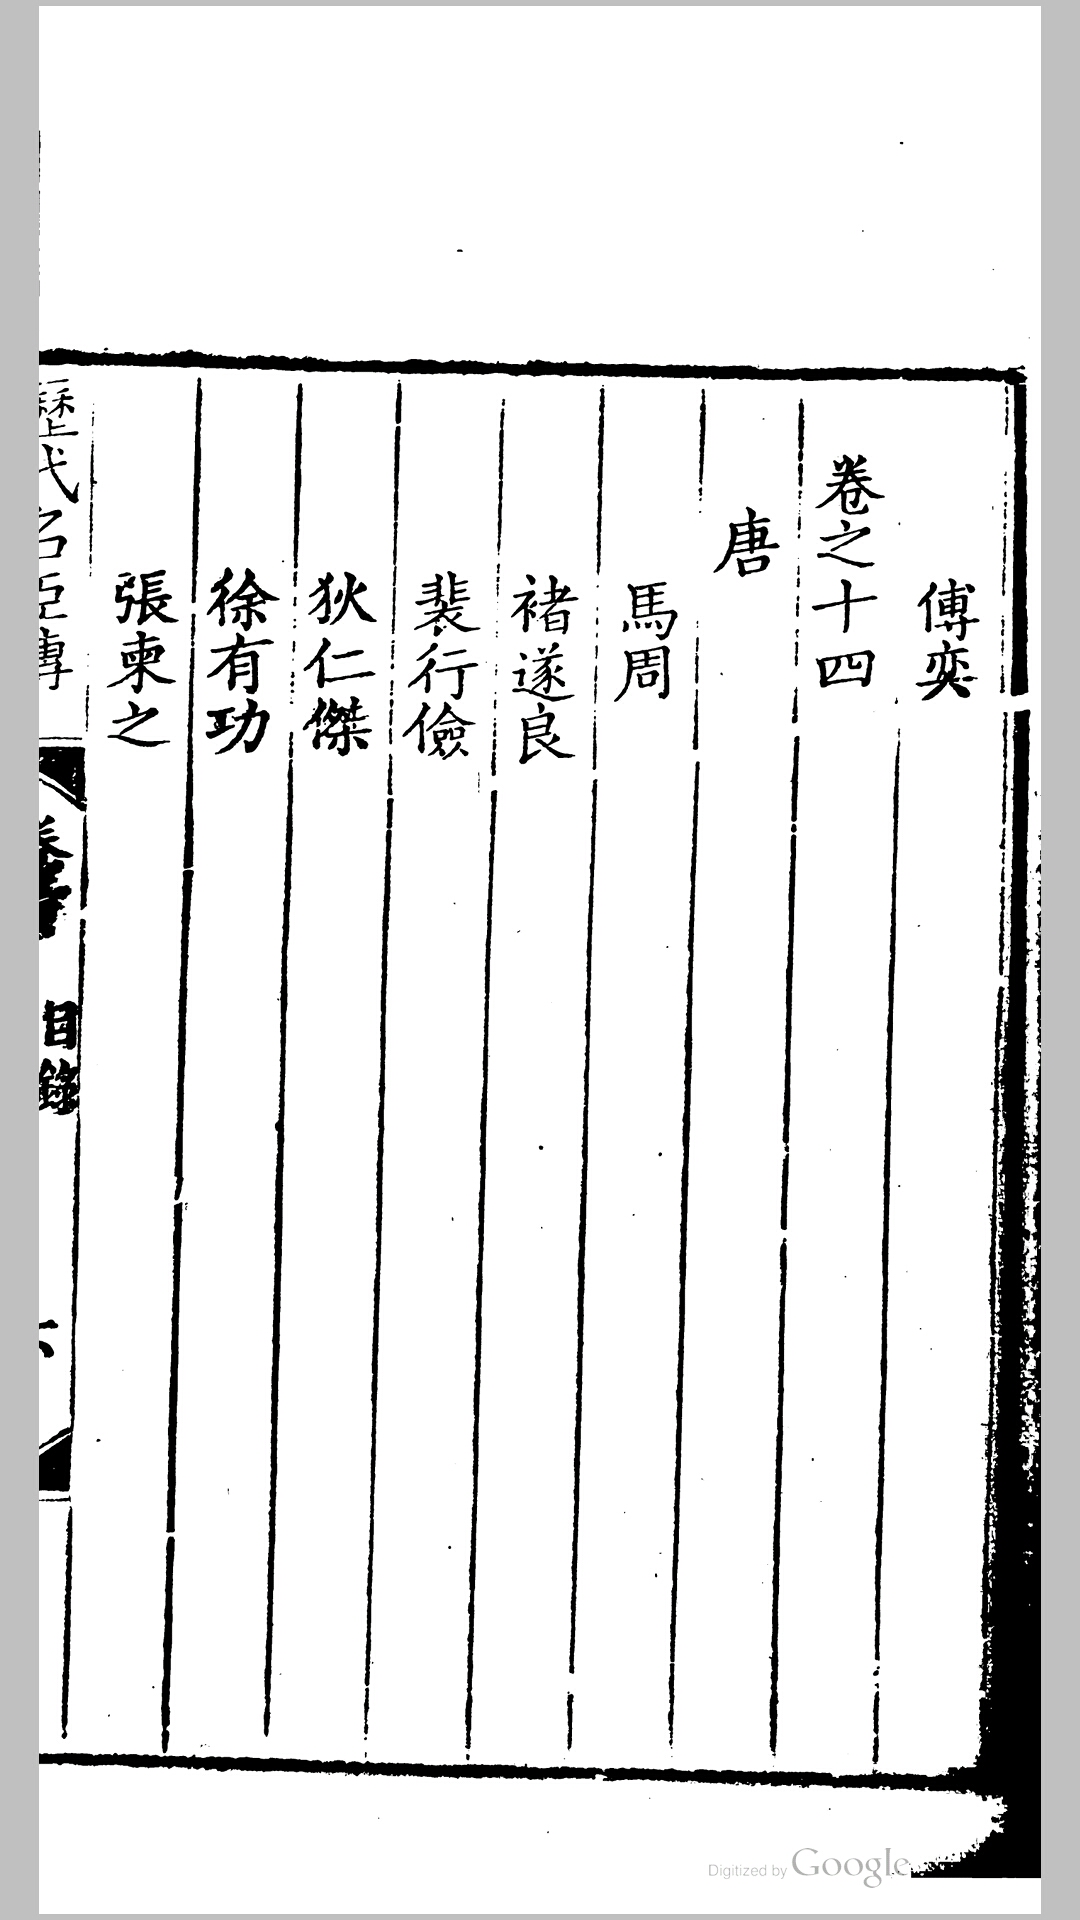 傅奕
卷之十四
唐
馬周
褚遂良
裴行儉
狄仁傑
徐有功
張柬之
歷代名臣傳
目錄
Digitized by Google